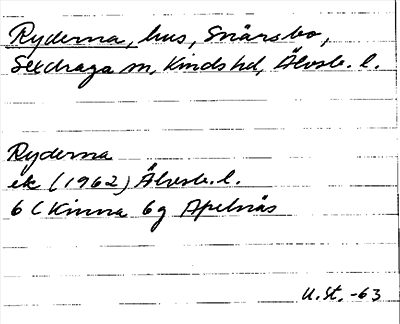 Ryderna, hus, Snärsbo,
Sexdraga sn, Kinds hd, Älvsb. l.
Ryderna
ek (1962) Älvsb. l.
6 C Kinna 6 g Apelnäs
U. St. -63